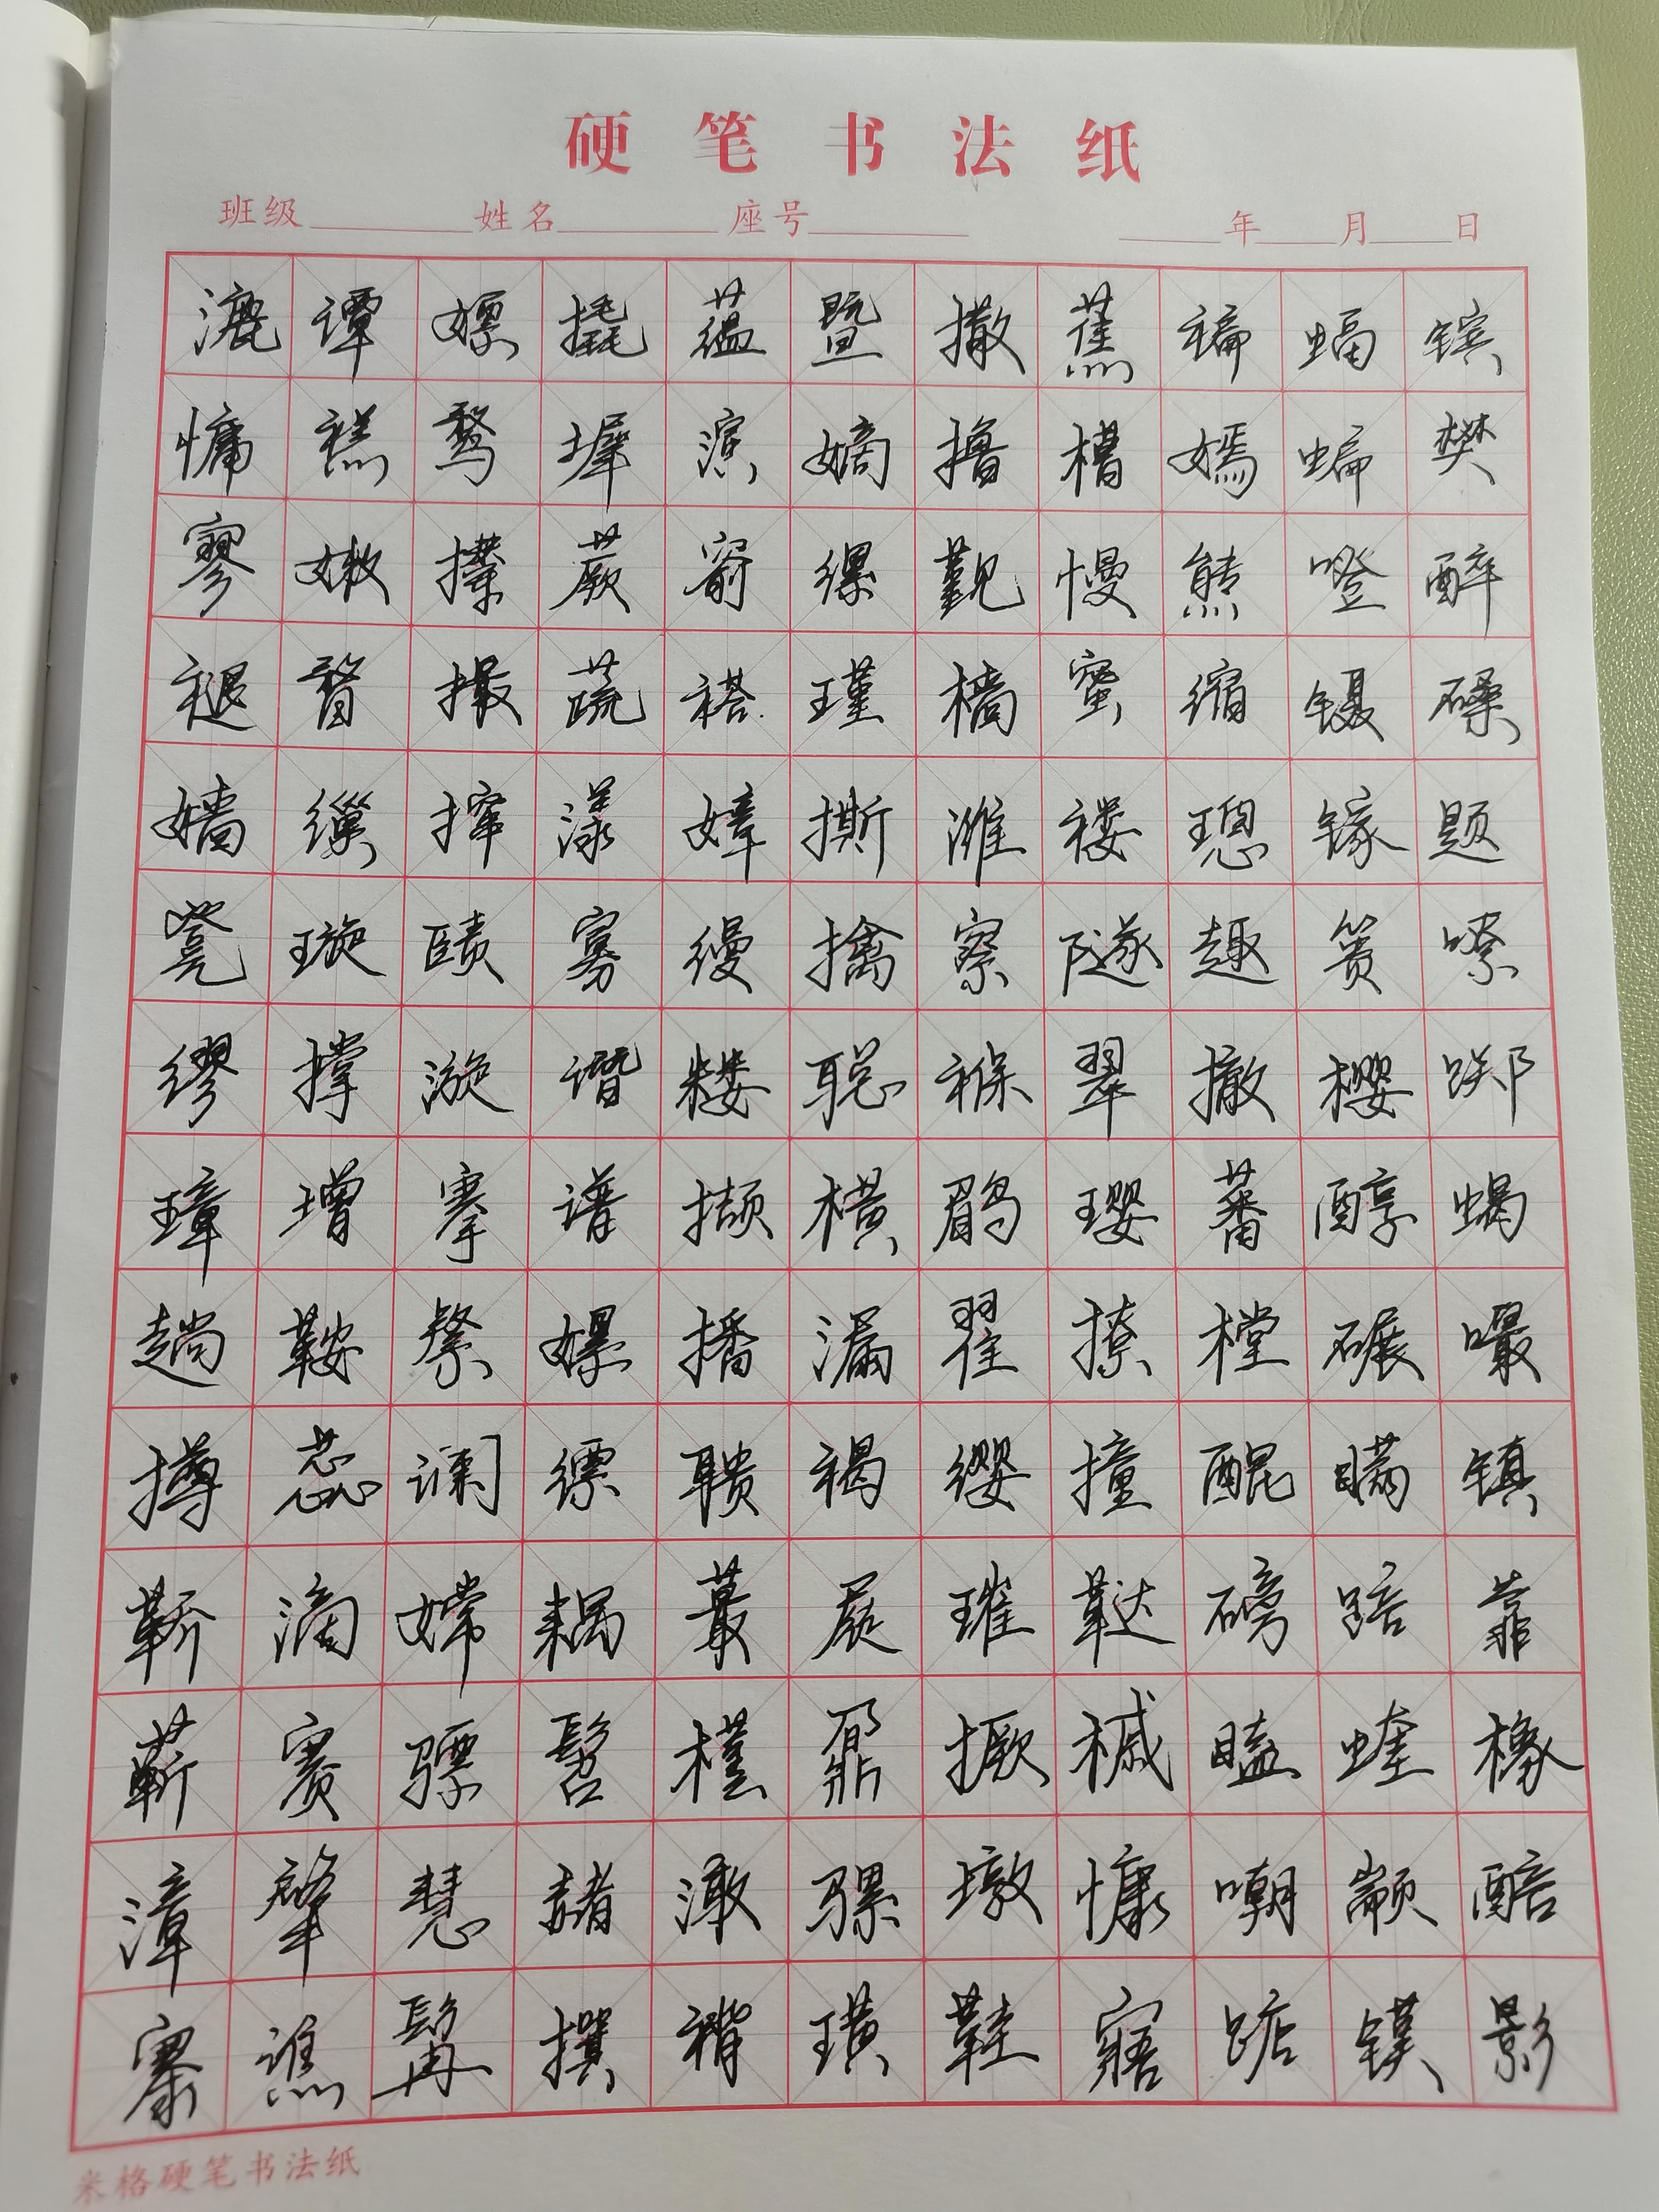 硬笔书法纸
班级 姓名 座号 年 月 日
漉 谭 嫖 撬 蕴 暨 撒 蕉 褊 蝠 镔
慵 禚 鹜 墀 滨 嫡 撸 槽 嫣 蝙 樊
寥 嫩 攥 蕨 窬 缧 觐 慢 熊 噔 醉
褪 瞀 撮 蔬 褡 瑾 樯 蜜 缩 镊 磉
嫱 缫 撺 漾 嫜 撕 潍 褛 璁 镓 题
凳 璇 赜 寡 缦 擒 察 隧 趣 篑 嘹
缪 撑 漩 谮 耧 聪 褓 翠 撤 樱 踯
璋 增 搴 谱 撷 横 鹛 璎 蕃 醇 蝎
趟 鞍 綮 嫘 播 漏 翟 撩 樘 碾 嘬
撙 蕊 谰 缥 聩 褐 缨 撞 醌 瞒 镇
鞒 滴 嫦 耦 蕞 屣 璀 鞑 磅 踣 靠
蕲 赛 骠 髫 槿 鼐 撅 槭 瞌 蝰 橡
漳 肇 慧 赭 潋 骡 墩 慷 嘲 颛 醅
寨 谯 髯 撰 褙 璜 鞋 寤 踮 镆 影
米格硬笔书法纸